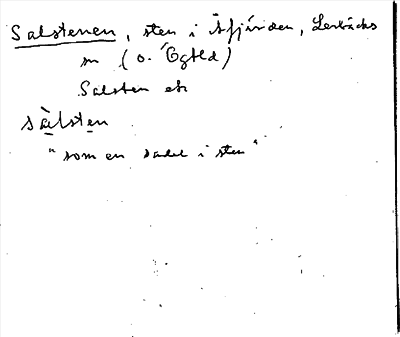 Salstenen, sten i Åsfjärden, Lerbäcks
sn (o. Ögbld)
Salsten ek
sàlsten
"som en sadel i sten"